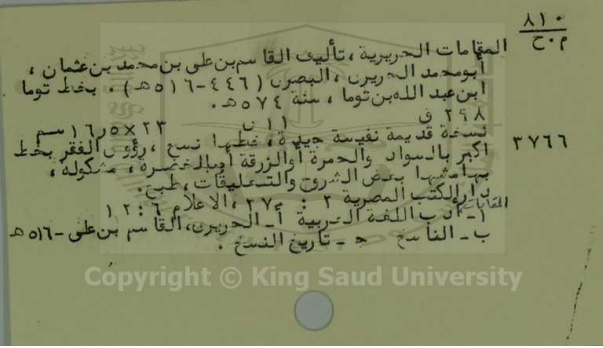 ٨١٠
م.ح
المقامات الحريرية، تأليف القاسم بن على بن محمد بن عثمان،
أبومحمد الحريرى، البصرى (٤٤٦-٥١٦هـ). بخط توما
ابن عبد الله بن توما، سنة ٥٧٤هـ.
٢٩٨ ق ١١ س ٢٣×١٦٫٥سم
٣٧٦٦ نسخة قديمة نفيسة جيدة، خطها نسخ، رؤوس الفقر بخط
اكبر بالسواد والحمرة أوالزرقة أوبالخضرة، مشكولة،
بهامشها بعض الشروح والتعليقات، طبع.
دار الكتب المصرية ٢: ٢٧٠، الاعلام ٦: ١٢
١- المقامات، أدب اللغة العربية أ- الحريرى، القاسم بن على -٥١٦هـ
ب- الناسخ جـ- تاريخ النسخ.
Copyright © King Saud University